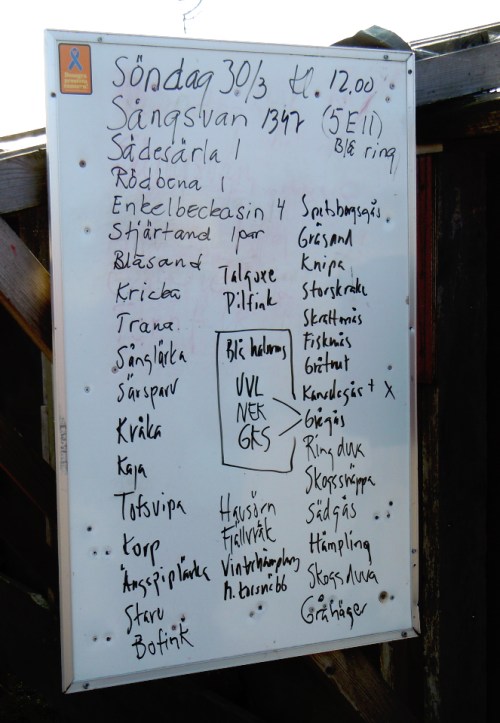 Söndag 30/3 kl. 12.00
Sångsvan 1347 (5E11)
Blå ring
Sädesärla 1
Rödbena 1
Enkelbeckasin 4
Stjärtand 1par
Bläsand
Kricka
Trana
Sånglärka
Sävsparv
Kråka
Kaja
Tofsvipa
Korp
Ängspiplärka
Stare
Bofink
Talgoxe
Pilfink
Blå halsring
UVL
NEK
GKS
Havsörn
Fjällvråk
Vinterhämpling
M. korsnäbb
Spetsbergsgås
Gräsand
Knipa
Storskrake
Skrattmås
Fiskmås
Gråtrut
Kanadagås + X
Grågås
Ringduva
Skogssnäppa
Sädgås
Hämpling
Skogsduva
Gråhäger